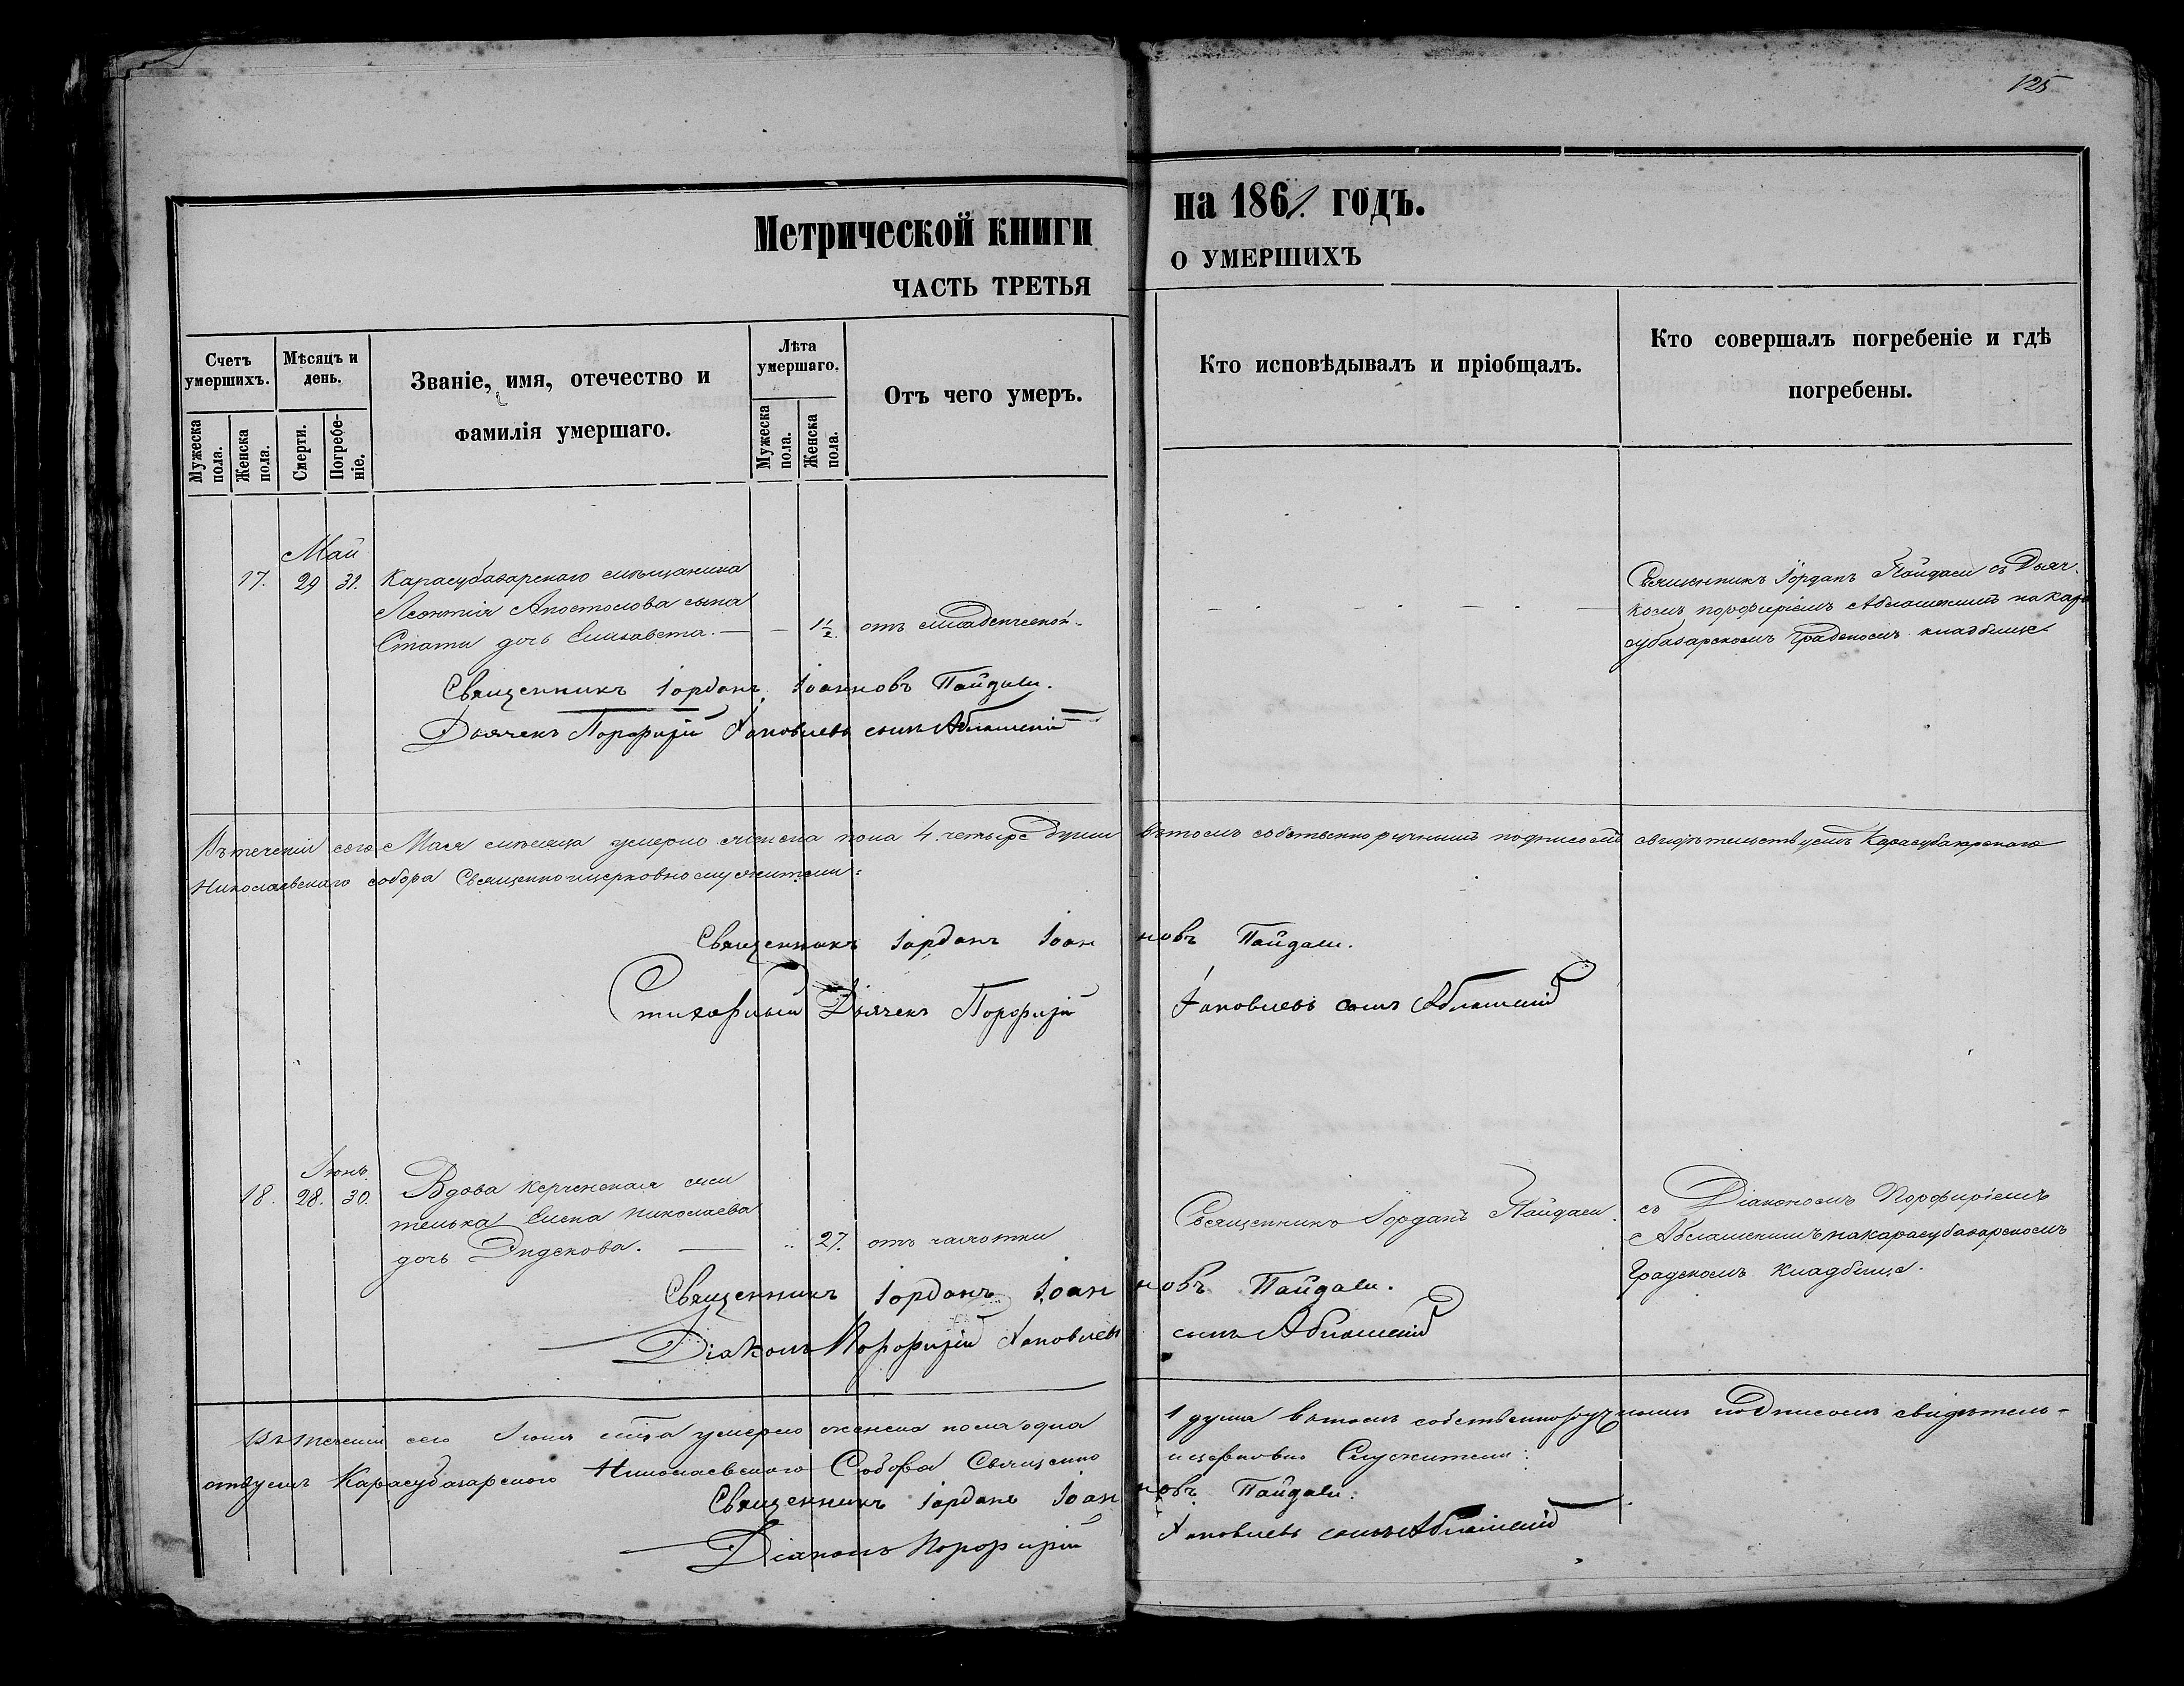 125
Метрической книги на 1861. годъ.
ЧАСТЬ ТРЕТЬЯ О УМЕРШИХЪ
Счетъ умершихъ.
Мужеска пола.
Женска пола.
Мѣсяцъ и день.
Смерти.
Погребе-
ніе.
Званіе, имя, отечество и
фамилія умершаго.
Лѣта умершаго.
Мужеска пола.
Женска пола.
Отъ чего умеръ.
Кто исповѣдывалъ и пріобщалъ.
Кто совершалъ погребеніе и гдѣ
погребены.
Май
17. 29 31. Карасубазарскаго мѣщанина
Леонтія Апостолова сына
Стати дочь Елисавета. — — 1½ отъ младенческой.
Священникъ Іорданъ Пайдаси съ Дьяч-
комъ Порфиріемъ Аблашскимъ на Кара
субазарскомъ Градскомъ кладбище.
Священникъ Іорданъ Іоанновъ Пайдаси.
Дьячекъ Порфирій Яковлевъ сынъ Аблашскій
Въ теченіи сего Мая мѣсяца умерло женска пола 4. четыре души въ томъ собственноручнымъ подписомъ свидѣтельствуемъ Карасубазарскаго
Николаевскаго собора Священно и церковно служители:
Священникъ Іорданъ Іоанновъ Пайдаси.
Стихарный Дьячекъ Порфирій Яковлевъ сынъ Аблашскій
Іюнь
18. 28. 30. Вдова керченская жи
телька Елена Николаева
дочь Дидекова. — „ 27. отъ чахотки
Священникъ Іорданъ Пайдаси.
съ Діакономъ Порфиріемъ
Аблашскимъ на карасубазарскомъ
Градскомъ кладбище.
Священникъ Іорданъ Іоанновъ Пайдаси.
Діаконъ Порфирій Яковлевъ сынъ Аблашскій
Въ теченіи сего Іюня мѣсяца умерло женска пола одна 1 душа въ томъ собственноручнымъ подписомъ свидѣтель-
ствуемъ Карасубазарского Николаевского Собора Священно и церковно Служители:
Священникъ Іорданъ Іоанновъ Пайдаси.
Діаконъ Порфирій Яковлевъ сынъ Аблашскій